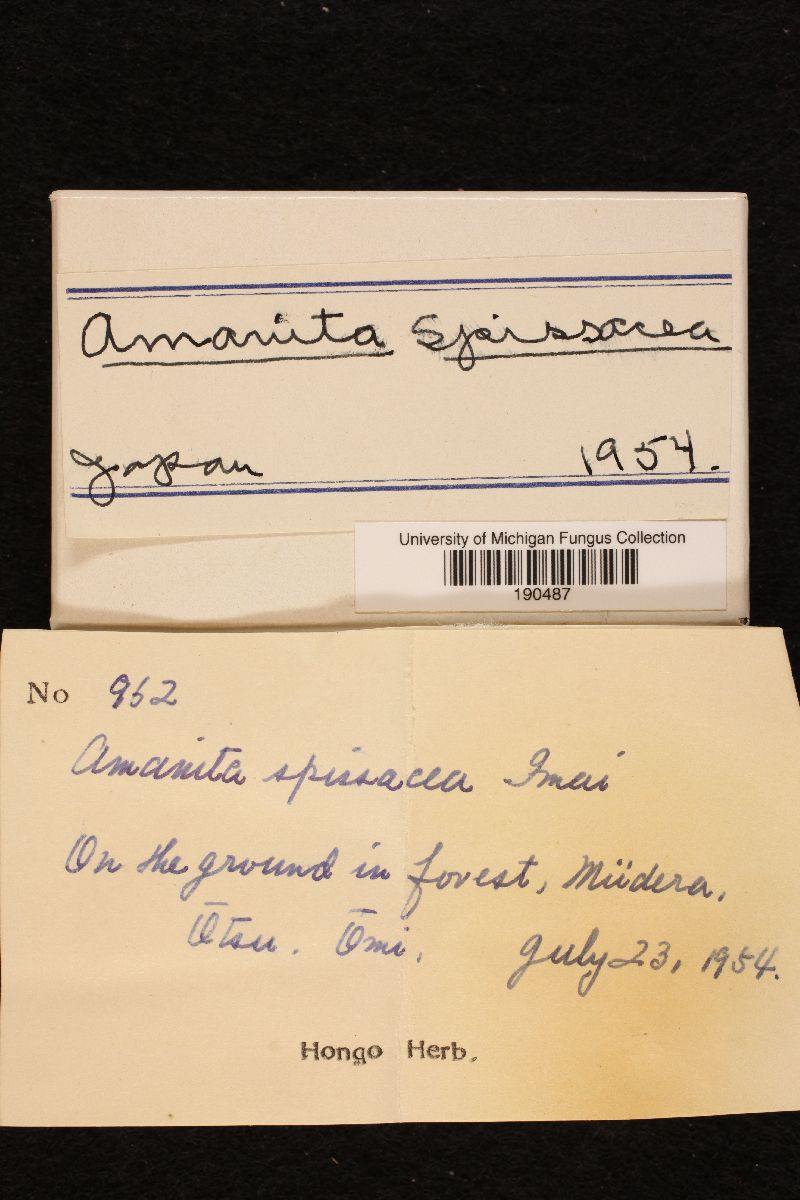 Amanita Spissacea
Japan 1954.
University of Michigan Fungus Collection
190487
No 952
Amanita spissacea Imai
On the ground in forest, Miidera,
Ōtsu. Ōmi. July 23, 1954.
Hongo Herb.